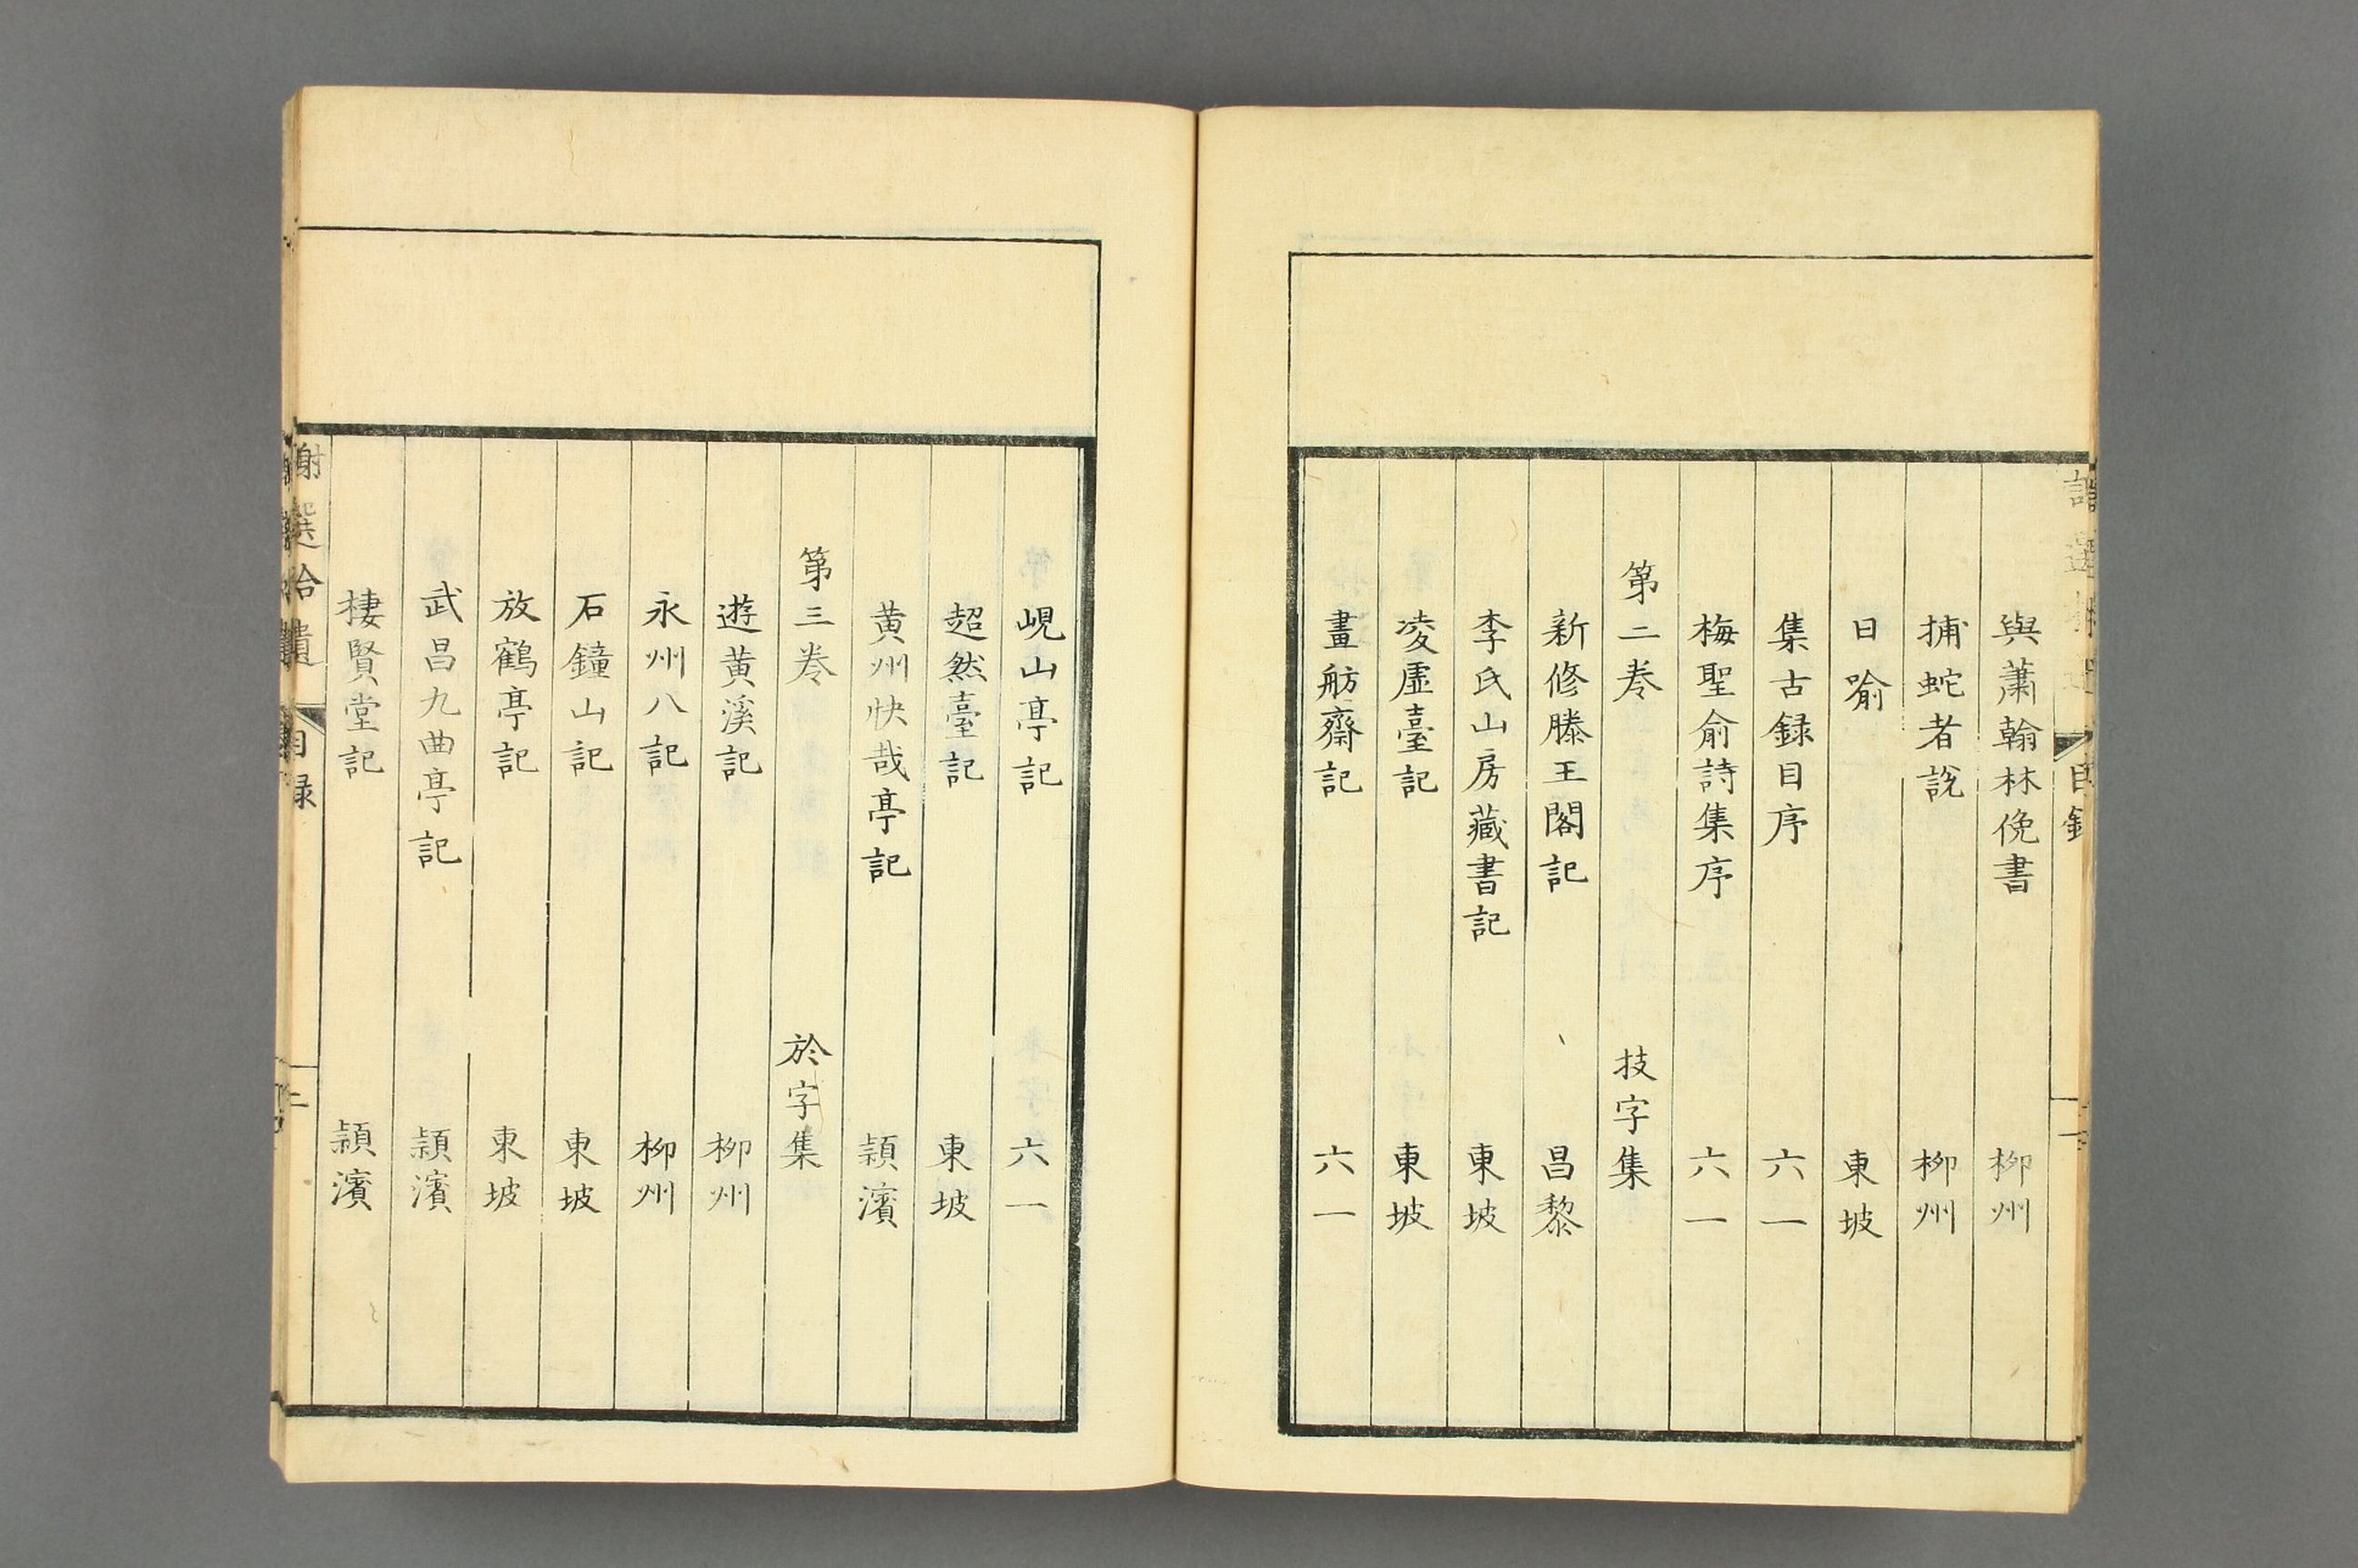 與蕭翰林俛書 柳州
捕蛇者說 柳州
日喻 東坡
集古録目序 六一
梅聖俞詩集序 六一
第二巻 技字集
新修滕王閣記 昌黎
李氏山房藏書記 東坡
凌虛臺記 東坡
畫舫齋記 六一
峴山亭記 六一
超然臺記 東坡
黄州快哉亭記 頴濱
第三巻 於字集
遊黄溪記 柳州
永州八記 柳州
石鐘山記 東坡
放鶴亭記 東坡
武昌九曲亭記 頴濱
棲賢堂記 頴濱
謝選拾遺 目録 二